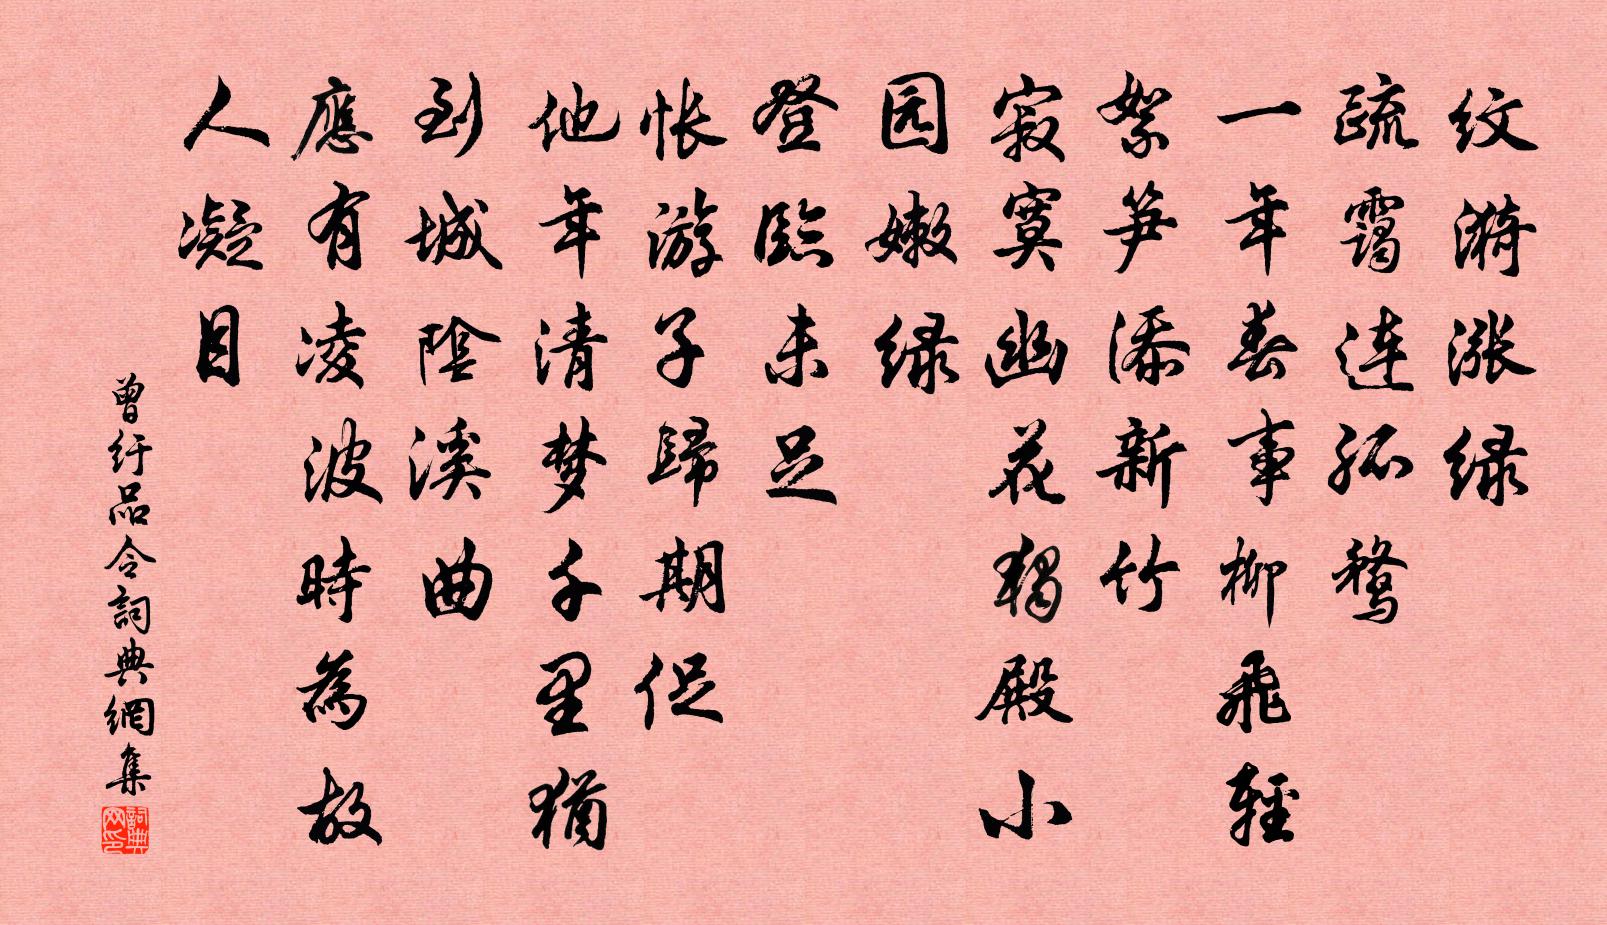 纹漪涨绿
疏霭连孤鹜
一年春事柳飞轻
絮笋添新竹
寂寞幽花独殿小
园嫩绿
登临未足
怅游子归期促
他年清梦千里犹
到城阴溪曲
應有凌波時為故
人凝目
曾纡品令詞典網集
詞典网印